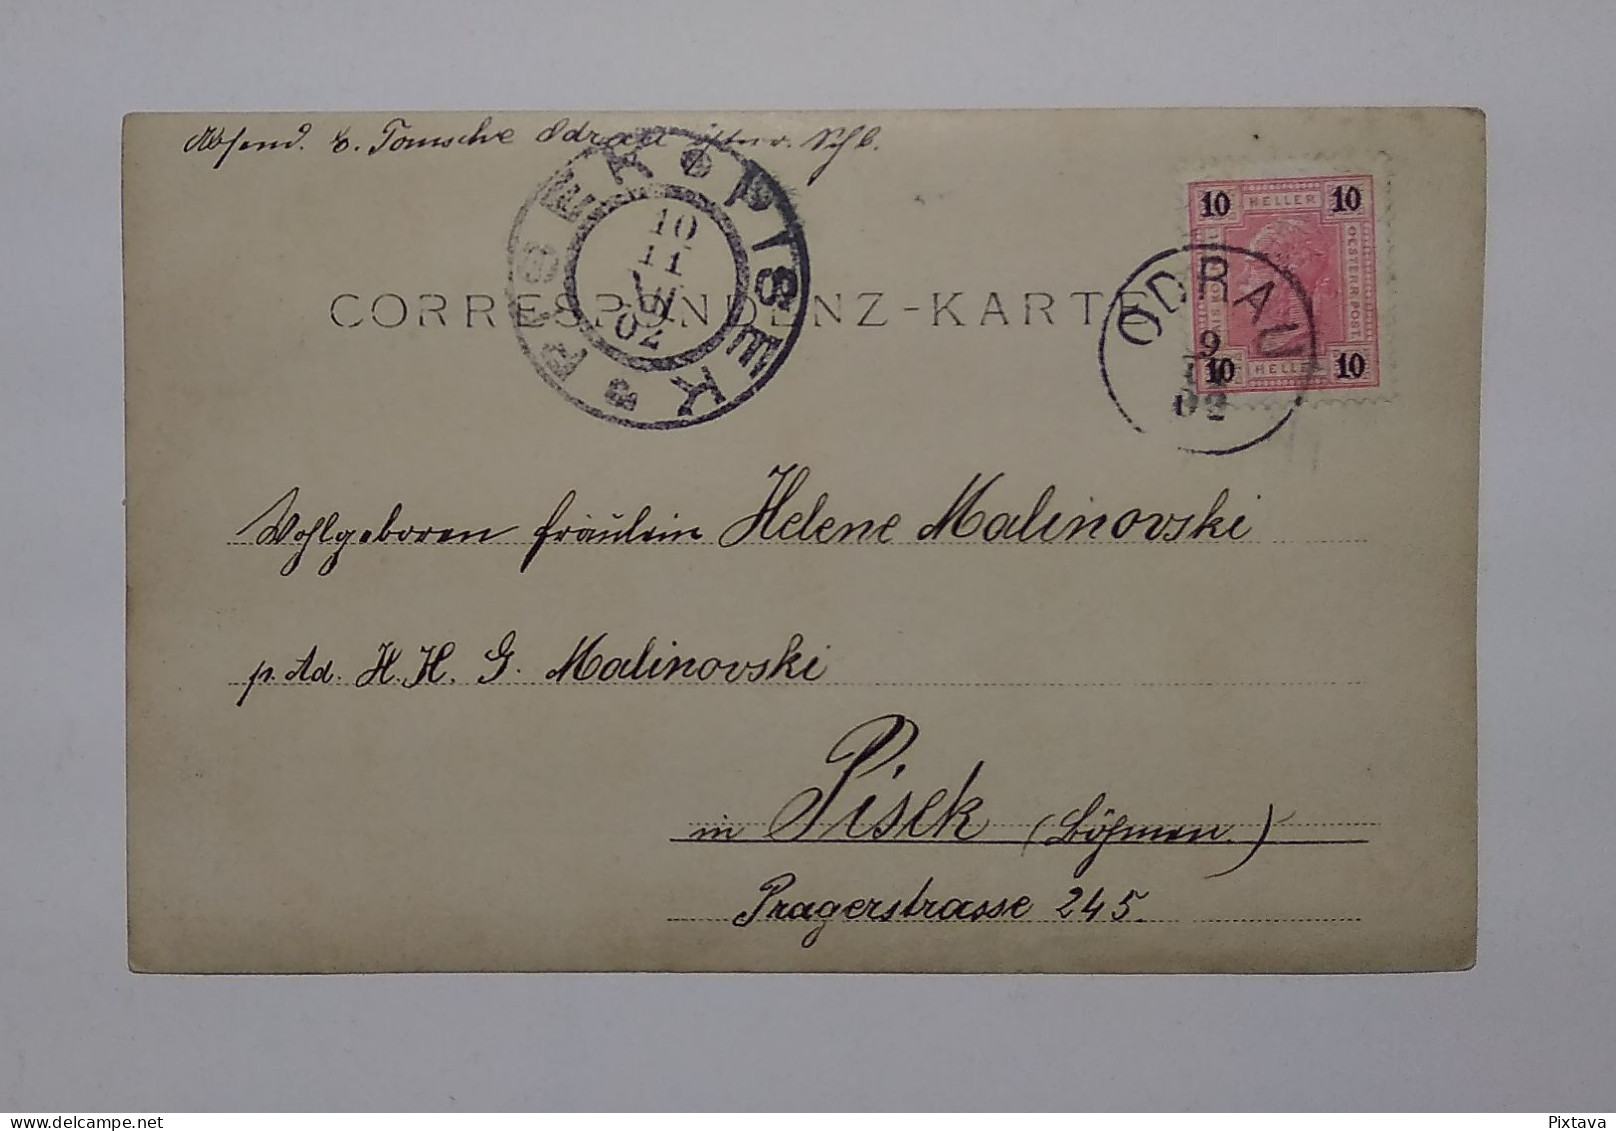 Absend. E. Tomsche Odrau österr. Schl.
PISEK PISEK
10
11
VII
02
10 HELLER 10
OESTERR. POST
10 HELLER 10
CORRESPONDENZ-KARTE
ODRAU
9
02
Wohlgeboren Fräulein Helene Malinovski
p. Ad. H. H. G. Malinovski
in Pisek (Böhmen.)
Pragerstrasse 245.
delcampe.net
Pixtava